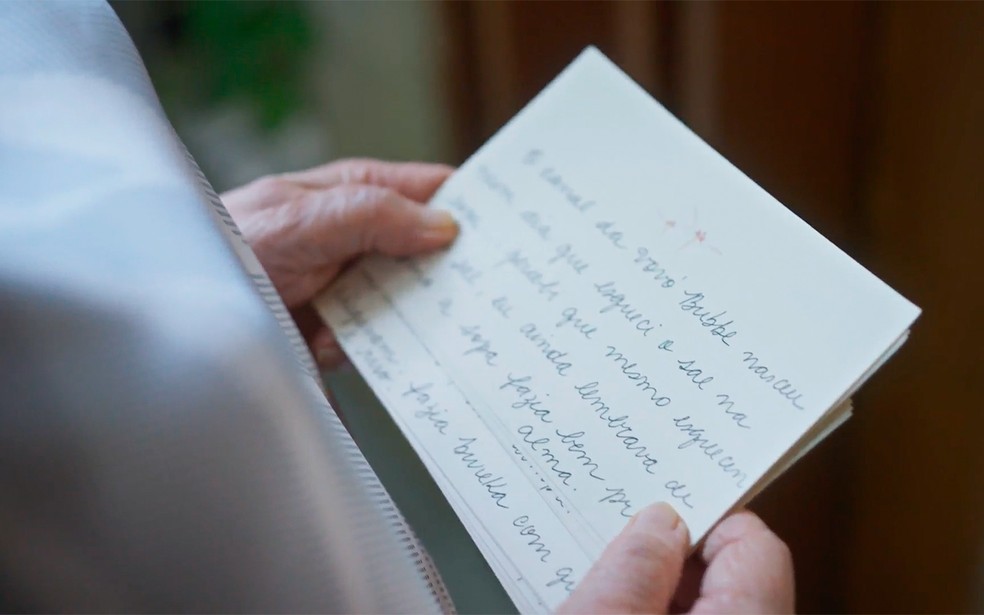 O canal da vovó Bubbe nasceu
num dia que esqueci o sal na
que mesmo esquecen
sal eu ainda lembrava de
a sopa fazia bem pr
alma.
fazia bureka com qu